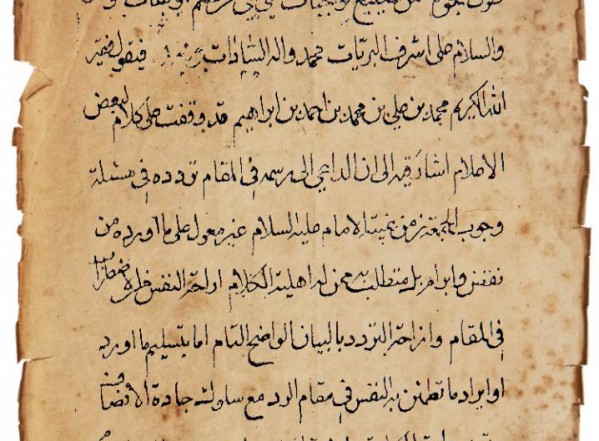 والسلام على اشرف البريات محمد واله السادات فيقول فقير
الله الكريم محمد بن علي بن محمد بن احمد بن ابراهيم قد وقفت على كلام لبعض
الاعلام اشار فيه الى ان الداعي الى رسمه في المقام تردده في مسئلة
وجوب الجمعة زمن غيبة الامام عليه السلام غير معول على ما اورده من
نقض وابرام بل متطلب به ممن له اهلية الكلام اراحة النفس
في المقام وازاحة التردد بالبيان الواضح التام اما بتسليم ما اورد
او ايراد ما تطمئن به النفس في مقام الرد مع سلوك جادة الانصاف